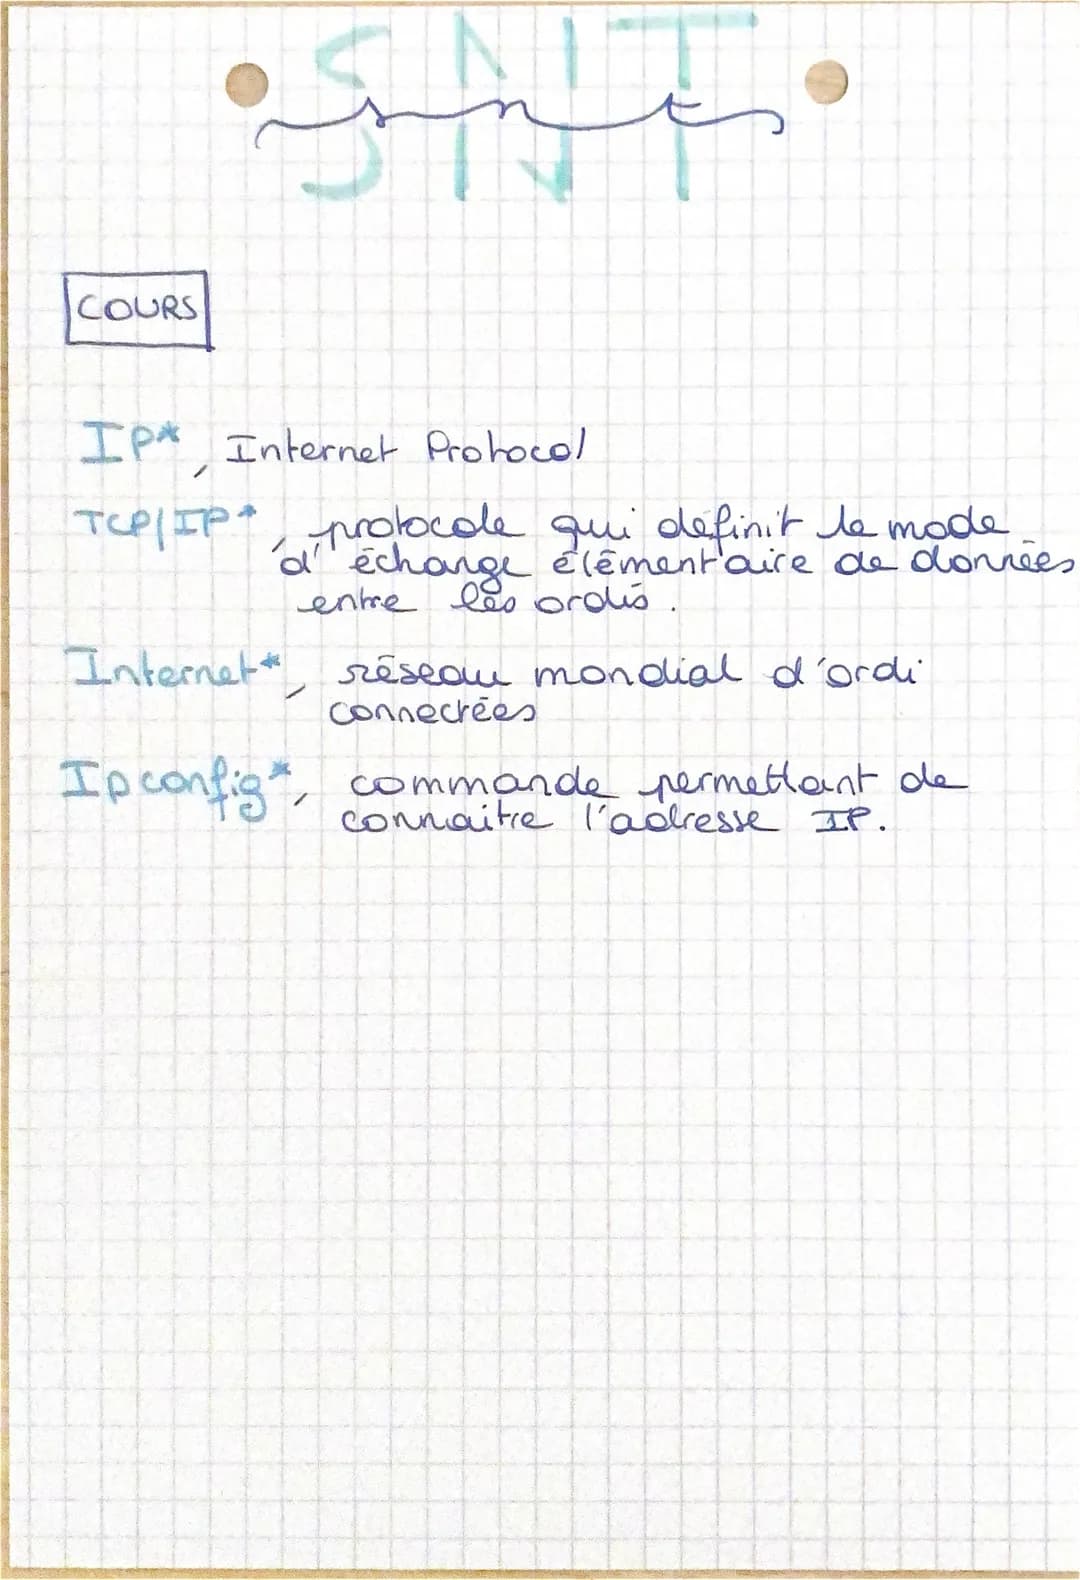 SNT
snt
COURS
IP*, Internet Protocol
TCP/IP*, protocole qui définit le mode
d'échange élémentaire de données
entre les ordis.
Internet*, réseau mondial d'ordi
connectées
Ipconfig*, commande permettant de
connaitre l'adresse IP.